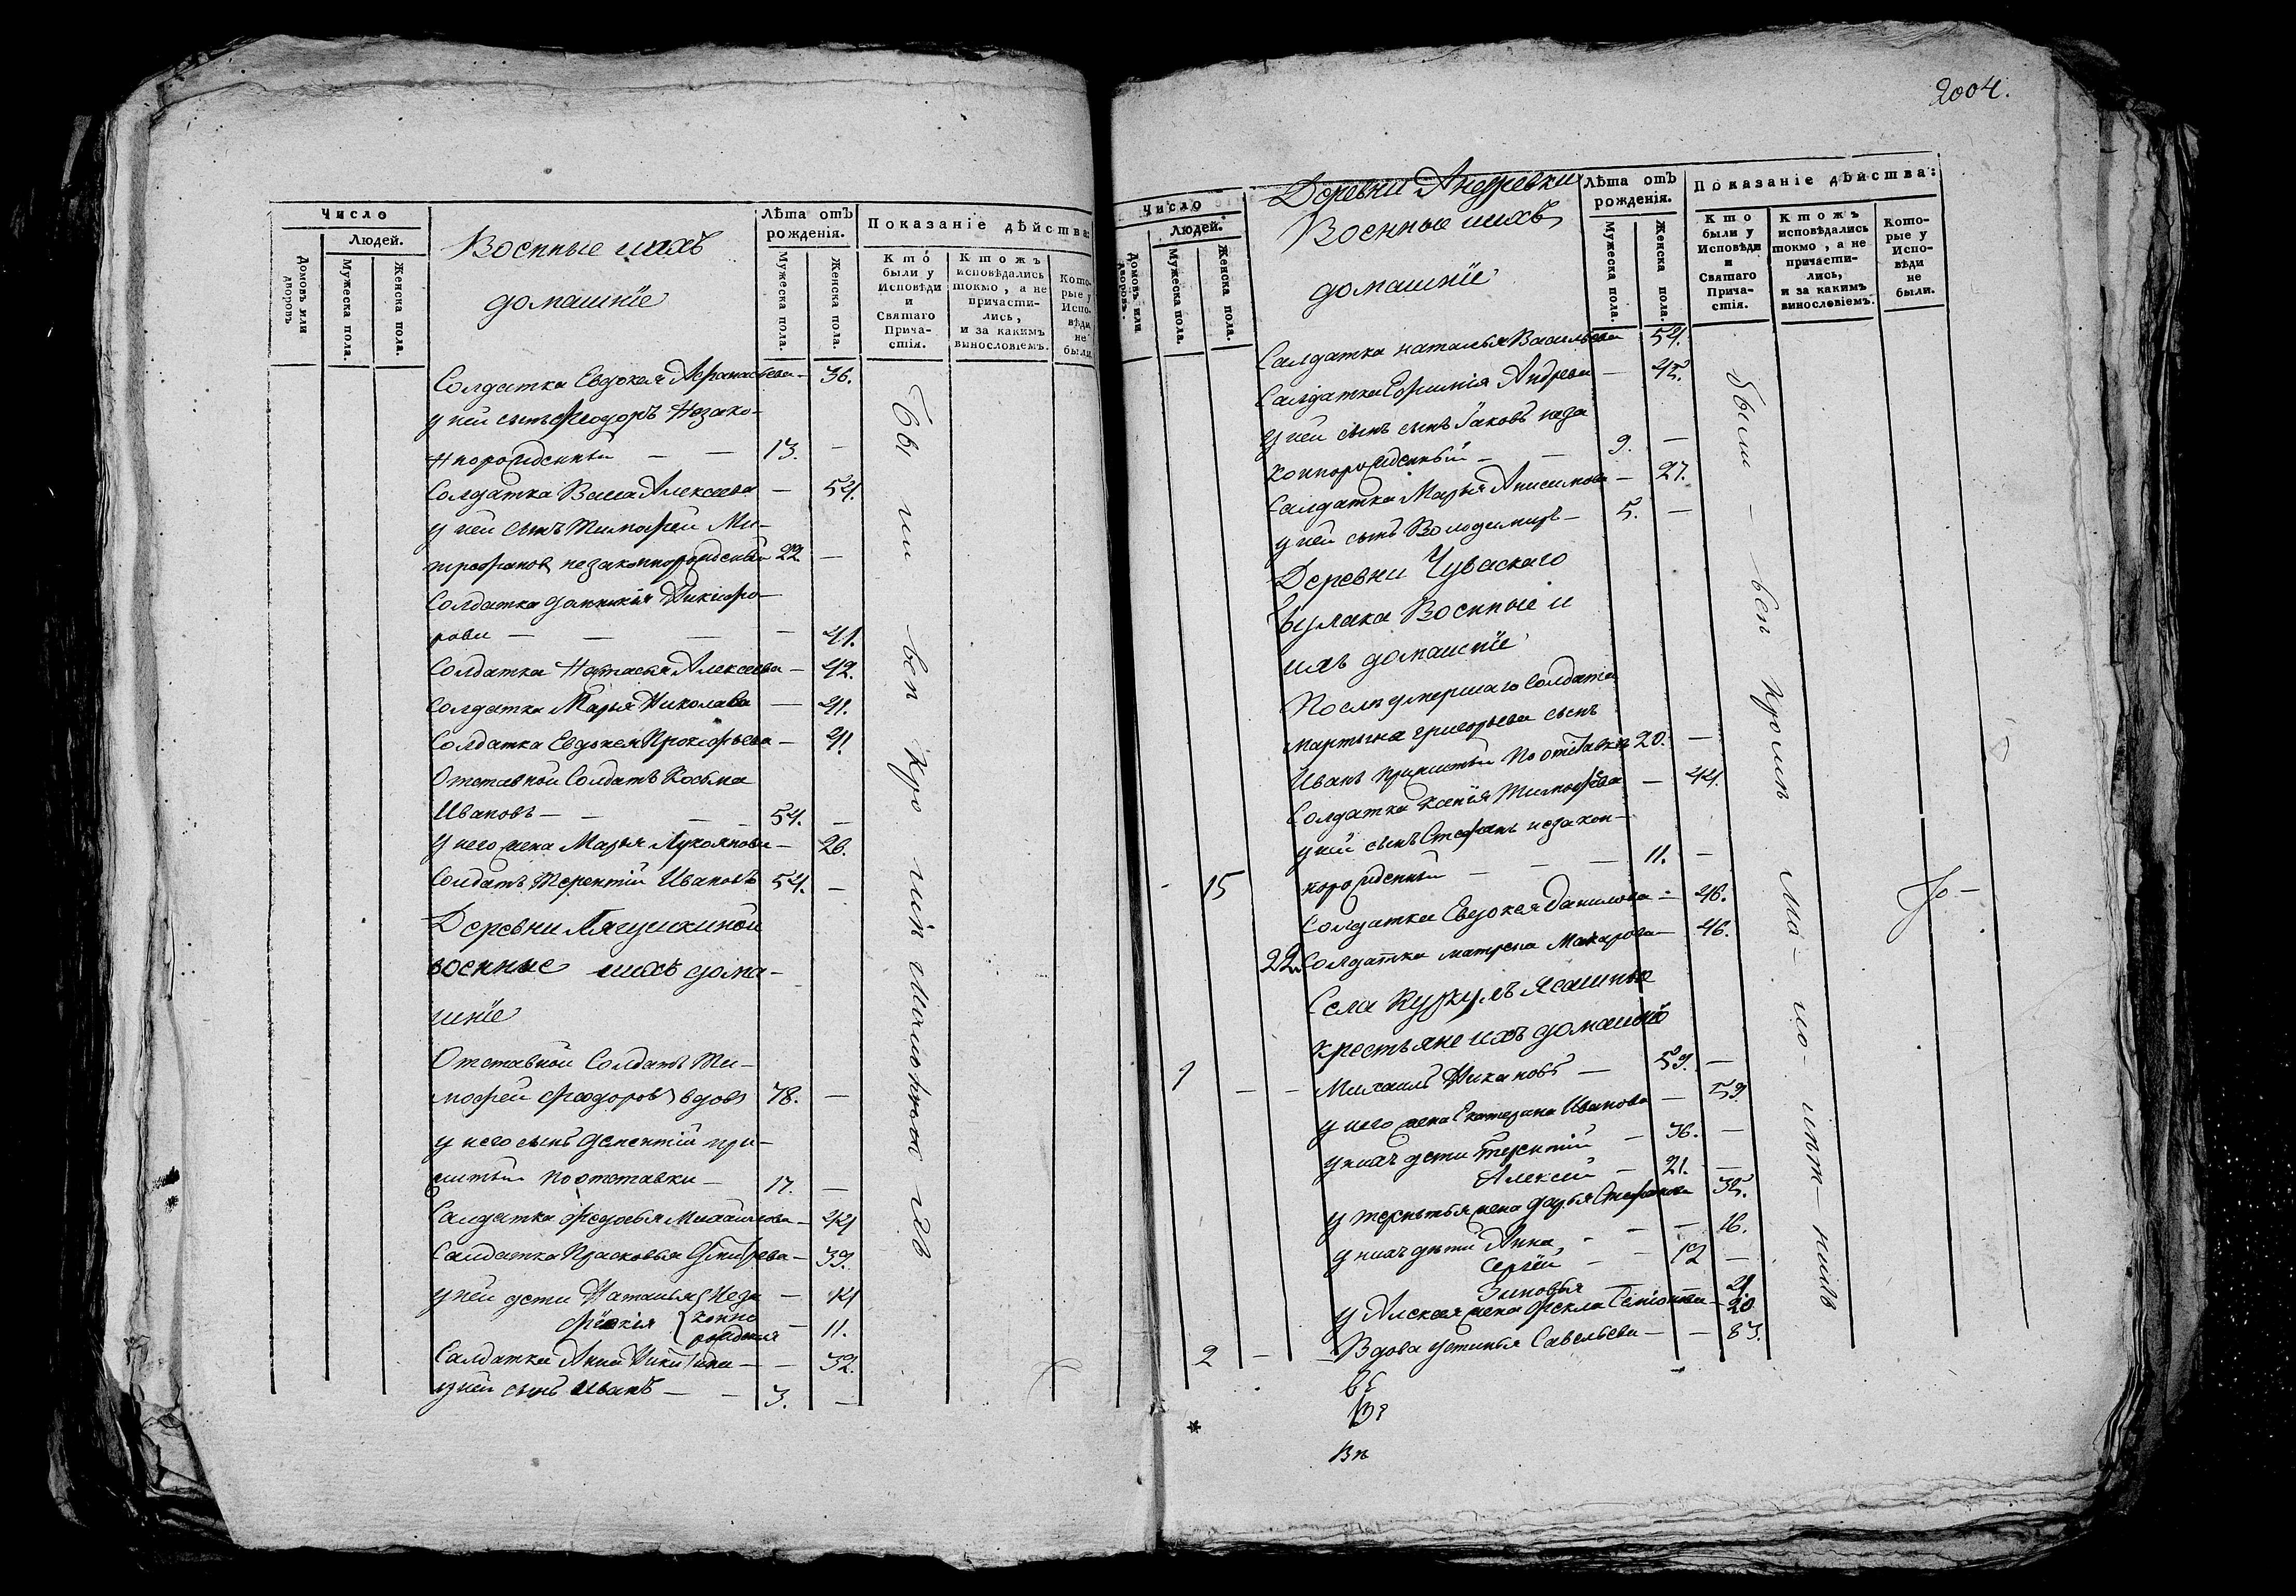 Число
Людей.
Домовъ или дворовъ
Мужеска пола.
Женска пола.
Военные ихъ
домашнїе
Лѣта отъ рожденія.
Мужеска пола.
Женска пола.
Показаніе дѣйства:
Кто были у Исповѣди и Святаго Прича-стія.
Ктожъ исповѣдались токмо, а не причасти-лись, и за какимъ винословіемъ.
Кото-рые у Испо-вѣди не были
Солдатка Евдокея Афанасьева — 36.
у ней сынъ Феодоръ Незако-
ннорожденный — — 13. —
Солдатка Васса Алексеева — 54.
у ней сынъ Тимофей Ми-
трофановъ незаконнорожденный 22 —
Солдатка Никифо-
рова — — — — 41.
Солдатка Настасья Алексеева — 42.
Солдатка Марья Николаева — 41.
Солдатка Евдокея Прокофьева — 41
Отставной Солдатъ Косьма
Ивановъ — — — 54. —
у него жена Марья Лукоянова — 26.
Солдатъ Терентій Ивановъ 54. —
Деревни Лягушкиной
военные ихъ дома-
шнїе
Отставной Солдатъ Ти-
мофей Феодоровъ вдовъ 78. —
у него сынъ Дементій при-
житый по отставки — 17. —
Салдатка Федосья Михайлова — 44
Салдатка Прасковья — 39.
у ней дети Наталья Неза — 14
конно
рожденыя — 11.
Салдатка Анна Никитина — — 32.
у ней сынъ Иванъ — — 3. —
Бы ли
2004.
Число
Людей.
Домовъ или дворовъ.
Мужеска пола.
Женска пола.
Деревни Андревки
Военные ихъ
домашнїе
Лѣта отъ рожденія.
Мужеска пола.
Женска пола.
Показаніе дѣйства:
Кто были у Исповѣди и Святаго Прича-стія.
Ктожъ исповѣдались токмо, а не причасти-лись, и за какимъ винословіемъ.
Кото-рые у Испо-вѣди не были.
Салдатка Наталья Васильева 54.
Салдатка Ефимія Андрева — 45.
у ней сынъ сынъ Іаковъ неза
коннорожденный — — 9. —
Салдатка Марья Анисимова — 27.
у ней сынъ Володимиръ — 5. —
Деревни Чуваскаго
Булака Военные и
ихъ домашнїе
После умершаго Солдата
Мартына Григорьева сынъ
Иванъ прижитый По отставке 20. —
Солдатка Ксенїя Тимофеева — 44.
у ней сынъ Стефанъ незакон-
норожденный — — — 11. —
- 15
Солдатка Евдокея Данилова — 46.
22. Солдатка Матрена Макарова — 46.
Села Куркулъ Ясашные
крестьяне ихъ домашнїе
1 — — Михаилъ — 59. —
у него жена Екатерина Иванова — 59.
у нихъ дети Терентій — 36. —
Алексей — 21. —
у Терентья жена Дарья Стефанова 35.
у нихъ дети Анна — — — 16.
Сергей — — 12 —
Зиновья
у Алексея жена Фекла — 20.
2 — — Вдова Устинья Савельева — — 83.
были —